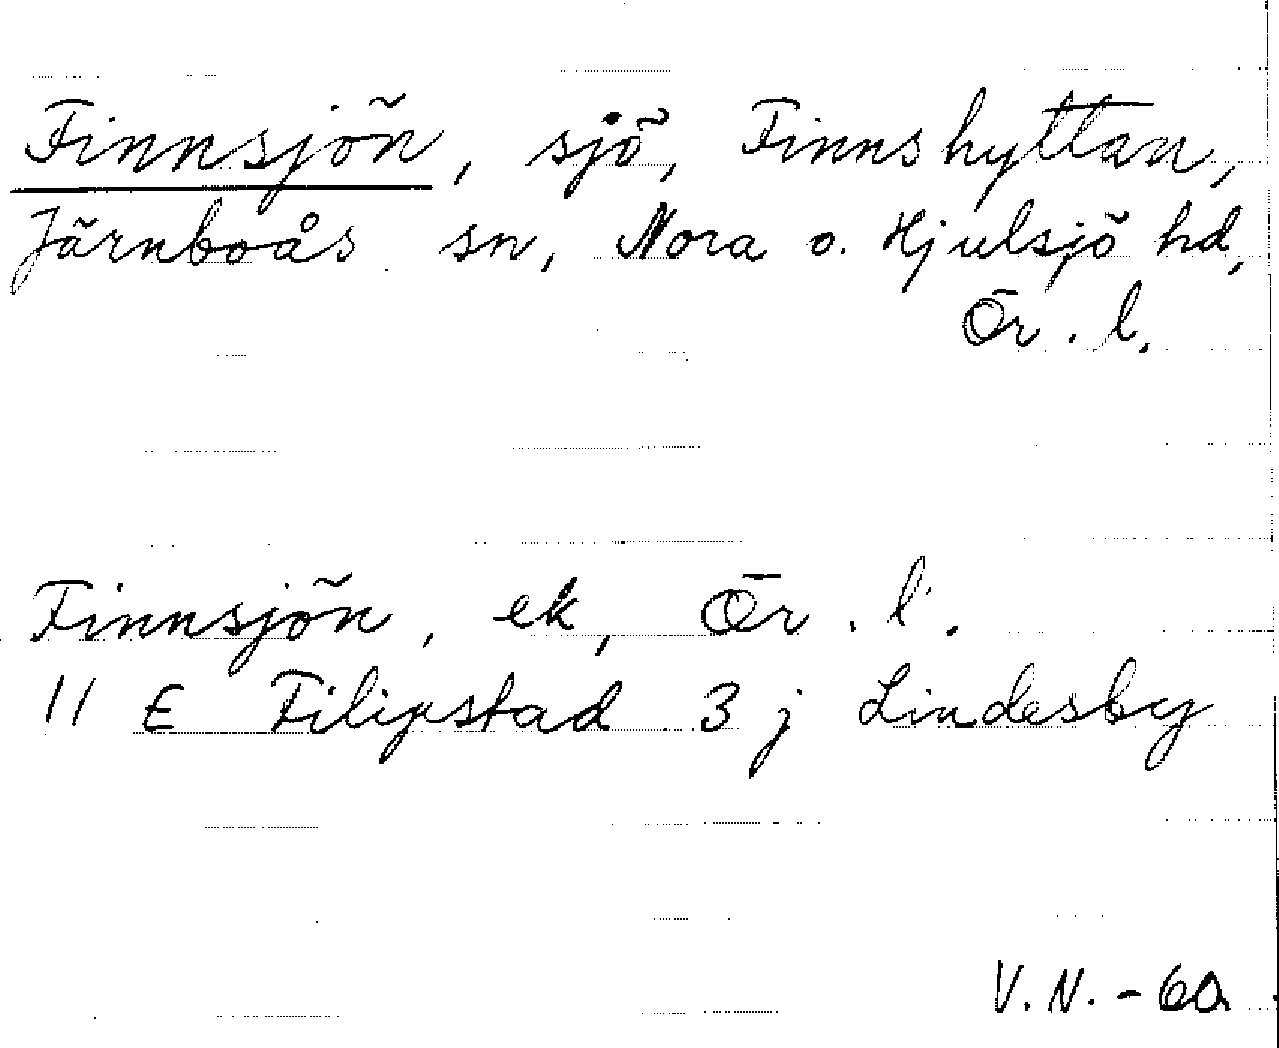 Finnsjön, sjö, Finnshyttan,
Järnboås sn, Nora o. Hjulsjö hd,
Ör. l.
Finnsjön, ek, Ör. l.
11 E Filipstad 3 j Lindesby
V.N. - 60